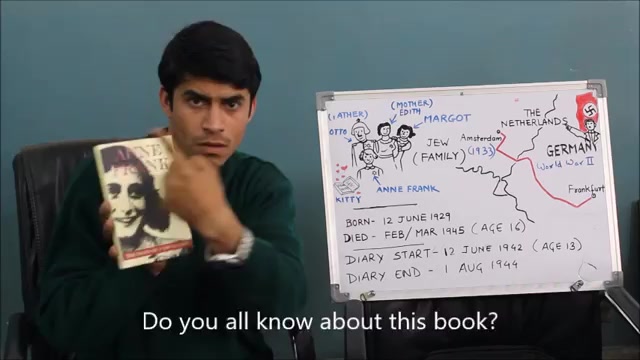 ANNE
FRANK
(FATHER)
OTTO
(MOTHER)
EDITH
MARGOT
JEW
(FAMILY)
KITTY
ANNE FRANK
THE
NETHERLANDS
Amsterdam
(1933)
GERMANY
World War II
Frankfurt
BORN- 12 JUNE 1929
DIED- FEB/MAR 1945 (AGE 16)
DIARY START- 12 JUNE 1942 (AGE 13)
DIARY END - 1 AUG 1944
Do you all know about this book?